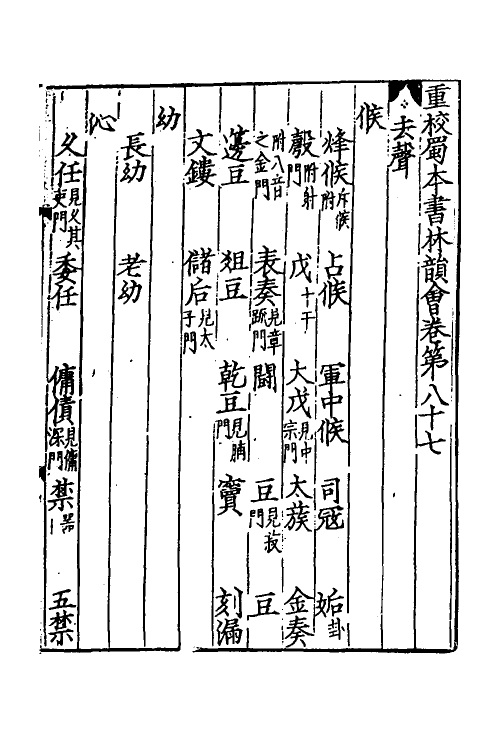 重校蜀本書林韻會卷第八十七
去聲
候
烽候斥候附 占候 軍中候 司寇 姤卦
彀附射門 戊十干 大戊見中宗門 太蔟 金奏
附八音之金門 表奏見章䟽門 鬪 豆見菽門 豆
籩豆 俎豆 乾豆見脯門 竇 刻漏
文鏤 儲后見太子門
幼
長幼 老幼
沁
久任見久其吏門 委任 傭僨見傭深門 禁 五禁